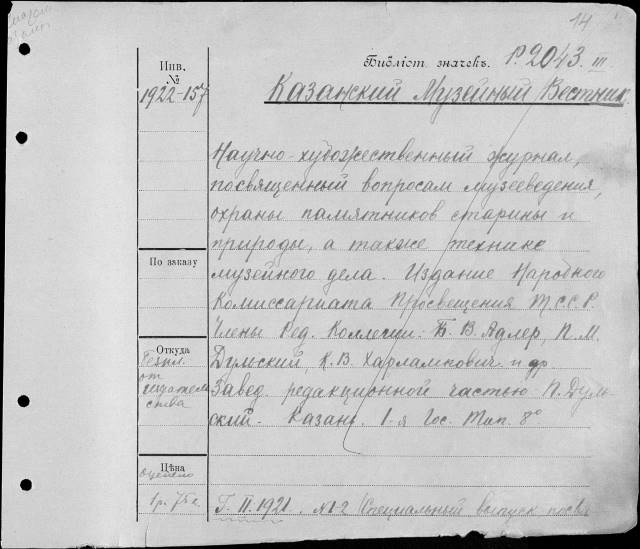 14
Библіот. значекъ. Р. 2043. III
Инв.
№
1922-157
Казанский Музейный Вестник.
Научно-художественный журнал,
посвященный вопросам музееведения,
охраны памятников старины и
природы, а также технике
По заказу
музейного дела. Издание Народного
Комиссариата Просвещения ТССР.
Члены Ред. Коллегии: Б. В. Адлер, П. М.
Откуда
Дульский, К. В. Харлампович и др.
от
издатель
ства
Завед. редакционной частью П. Дуль
ский. Казань. 1-я Гос. Тип. 8°
Цѣна
оценено
1 р. 75 к
Г. II. 1921. №1-2 (Специальный выпуск посв.